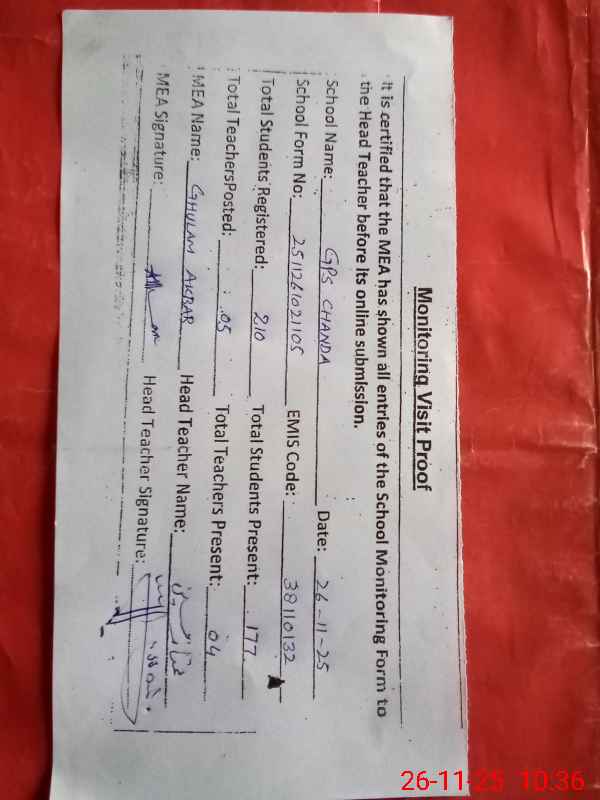 Monitoring Visit Proof
It is certified that the MEA has shown all entries of the School Monitoring Form to
the Head Teacher before its online submission.
School Name: GPS CHANDA Date: 26-11-25
School Form No: 2511261021105 EMIS Code: 38110132
Total Students Registered: 210 Total Students Present: 177
Total TeachersPosted: 05 Total Teachers Present: 04
MEA Name: GHULAM AKBAR Head Teacher Name:
MEA Signature: Head Teacher Signature:
26-11-25 10:36